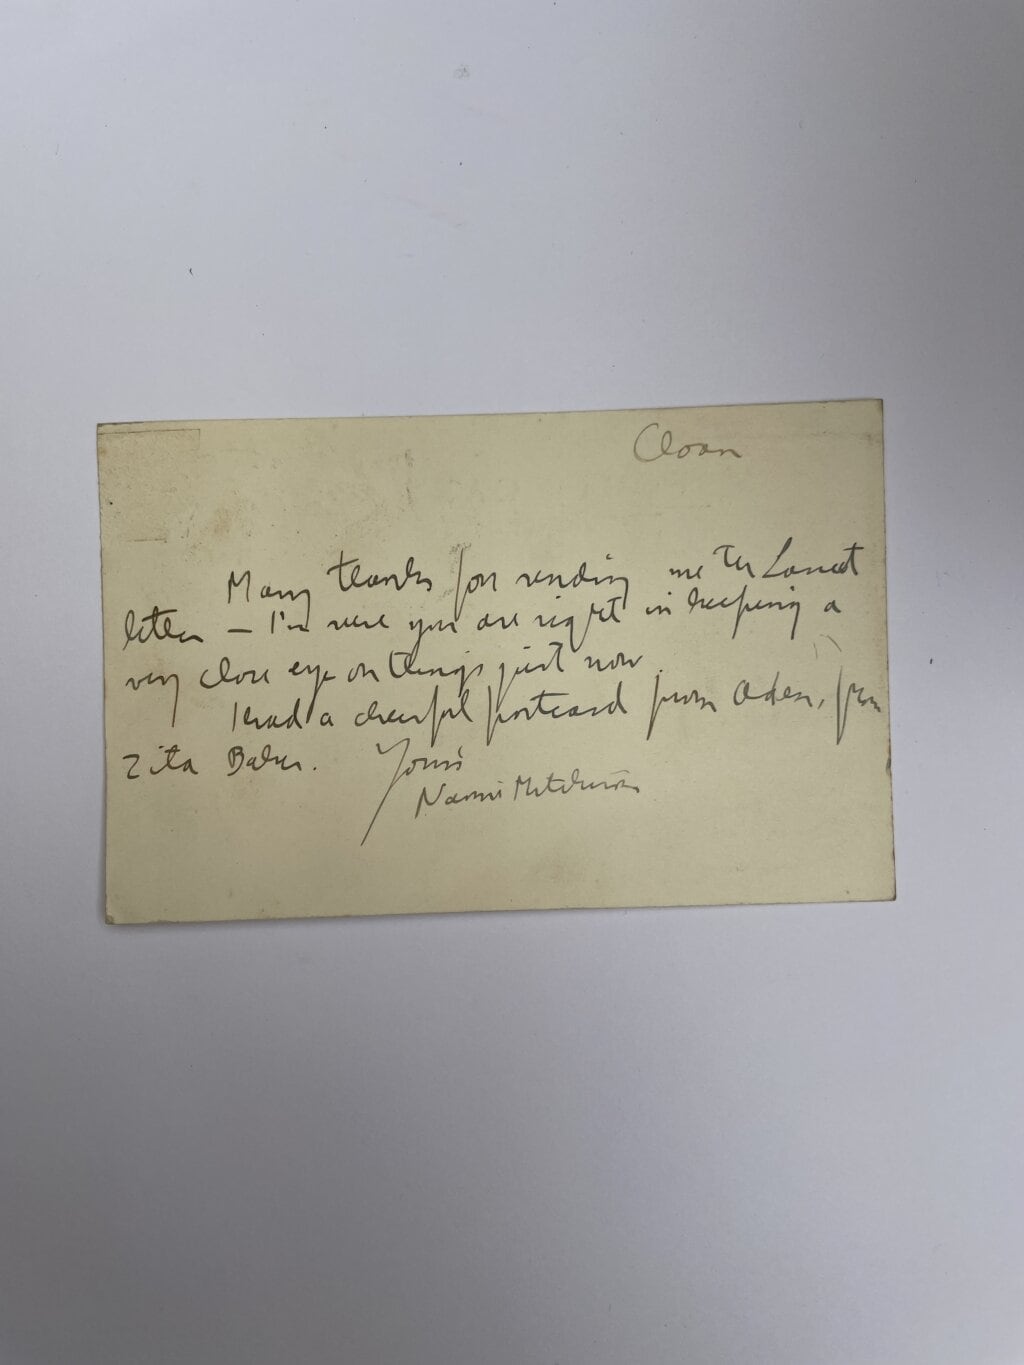 Cloan
Many thanks for sending me the Lancet
letter – I'm sure you are right in keeping a
very close eye on things just now.
I had a cheerful postcard from Aden, from
Zita Baker. Yours
Naomi Mitchison